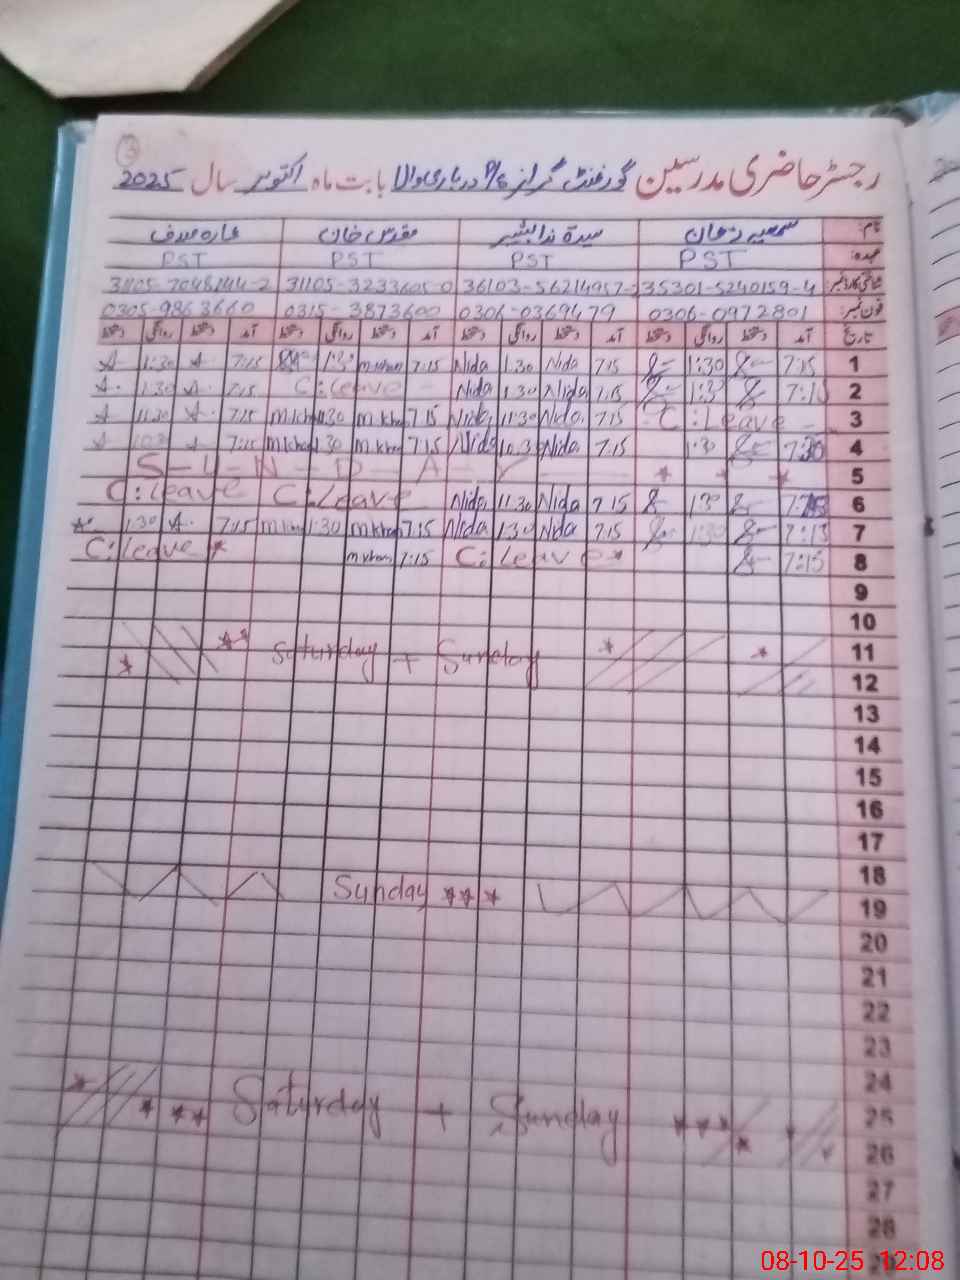 3
رجسٹر حاضری مدرسین گورنمنٹ گرلز P/S درباری والا بابت ماہ اکتوبر سال 2025
نام: سیدۃ ندا البشیر مقدس خان
عہدہ: PST PST PST PST
شناختی کارڈ نمبر: 35301-5240159-4 31105-3233605-0 31105-7048144-2
فون نمبر: 0306-0972801 0306-0369479 0315-3873600 0305-9863660
تاریخ آمد دستخط روانگی دستخط آمد دستخط روانگی دستخط آمد دستخط روانگی دستخط آمد دستخط روانگی دستخط
A 1:30 A 7:15 1:30 m.khan 7:15 Nida 1:30 Nida 7:15 1:30 7:15 1
A. 1:30 A. 7:15 C:Leave Nida 1:30 Nida 7:15 1:30 7:15 2
A 11:30 A. 7:15 m.khan 11:30 m.khan 7:15 Nida 11:30 Nida. 7:15 C:Leave 3
A A 7:15 m.khan m.khan 7:15 Nida 10:30 Nida 7:15 7:30 4
S-U-N-D-A-Y * * * 5
C:leave C:Leave Nida 11:30 Nida 7:15 1:30 7:15 6
A. 1:30 A. 7:15 m.khan 1:30 m.khan 7:15 Nida 1:30 Nida 7:15 1:30 7:15 7
C:leave * m.khan 7:15 C:Leave * 7:15 8
9
10
* ** Saturday + Sunday * * 11
12
13
14
15
16
17
18
Sunday *** 19
20
21
22
23
24
* * ** Saturday + Sunday *** * 25
26
27
28
08-10-25 12:08